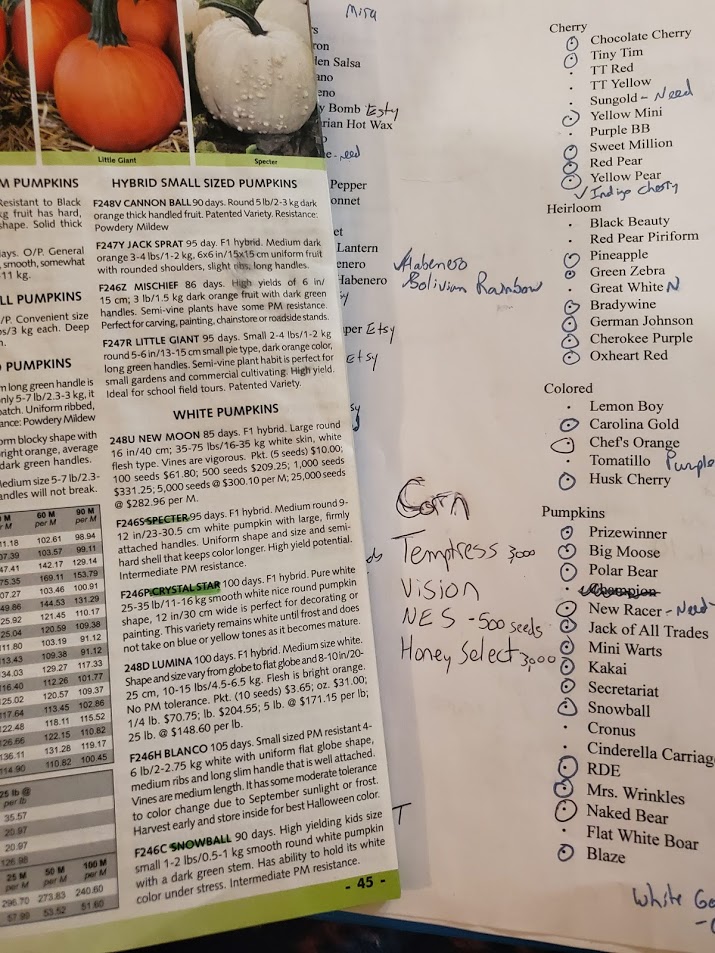 Little Giant
Specter
M PUMPKINS
Resistant to Black
kg fruit has hard,
shape. Solid thick
days. O/P. General
, smooth, somewhat
11 kg.
LL PUMPKINS
/P. Convenient size
bs/3 kg each. Deep
n.
D PUMPKINS
m long green handle is
only 5-7 lb/2.3-3 kg, it
patch. Uniform ribbed,
ance: Powdery Mildew
orm blocky shape with
right orange, average
dark green handles.
Medium size 5-7 lb/2.3-
andles will not break.
M 60 M 90 M
per M per M per M
11.18 102.61 98.94
07.39 103.57 99.11
47.41 142.17 129.14
75.35 169.11 153.79
07.27 103.46 100.91
49.86 144.53 131.29
25.92 121.45 110.17
25.04 120.59 109.38
11.80 103.19 91.12
13.43 109.38 91.12
34.03 129.27 117.33
16.40 112.26 101.77
25.02 120.57 109.37
17.64 113.45 102.86
22.48 118.11 115.52
26.66 122.15 110.82
36.11 131.28 119.17
14.90 110.82 100.45
25 lb @
per lb
35.57
20.97
20.97
126.98
25 M 50 M 100 M
per M per M per M
296.70 273.83 240.60
57.99 53.52 51.60
HYBRID SMALL SIZED PUMPKINS
F248V CANNON BALL 90 days. Round 5 lb/2-3 kg dark
orange thick handled fruit. Patented Variety. Resistance:
Powdery Mildew
F247Y JACK SPRAT 95 day. F1 hybrid. Medium dark
orange 3-4 lbs/1-2 kg, 6x6 in/15x15 cm uniform fruit
with rounded shoulders, slight ribs, long handles.
F246Z MISCHIEF 86 days. High yields of 6 in/
15 cm; 3 lb/1.5 kg dark orange fruit with dark green
handles. Semi-vine plants have some PM resistance.
Perfect for carving, painting, chainstore or roadside stands.
F247R LITTLE GIANT 95 days. Small 2-4 lbs/1-2 kg
round 5-6 in/13-15 cm small pie type, dark orange color,
long green handles. Semi-vine plant habit is perfect for
small gardens and commercial cultivating. High yield.
Ideal for school field tours. Patented Variety.
WHITE PUMPKINS
248U NEW MOON 85 days. F1 hybrid. Large round
16 in/40 cm; 35-75 lbs/16-35 kg white skin, white
flesh type. Vines are vigorous. Pkt. (5 seeds) $10.00;
100 seeds $61.80; 500 seeds $209.25; 1,000 seeds
$331.25; 5,000 seeds @ $300.10 per M; 25,000 seeds
@ $282.96 per M.
F246S SPECTER 95 days. F1 hybrid. Medium round 9-
12 in/23-30.5 cm white pumpkin with large, firmly
attached handles. Uniform shape and size and semi-
hard shell that keeps color longer. High yield potential.
Intermediate PM resistance.
F246P CRYSTAL STAR 100 days. F1 hybrid. Pure white
25-35 lb/11-16 kg smooth white nice round pumpkin
shape, 12 in/30 cm wide is perfect for decorating or
painting. This variety remains white until frost and does
not take on blue or yellow tones as it becomes mature.
248D LUMINA 100 days. F1 hybrid. Medium size white.
Shape and size vary from globe to flat globe and 8-10 in/20-
25 cm, 10-15 lbs/4.5-6.5 kg. Flesh is bright orange.
No PM tolerance. Pkt. (10 seeds) $3.65; oz. $31.00;
1/4 lb. $70.75; lb. $204.55; 5 lb. @ $171.15 per lb;
25 lb. @ $148.60 per lb.
F246H BLANCO 105 days. Small sized PM resistant 4-
6 lb/2-2.75 kg white with uniform flat globe shape,
medium ribs and long slim handle that is well attached.
Vines are medium length. It has some moderate tolerance
to color change due to September sunlight or frost.
Harvest early and store inside for best Halloween color.
F246C SNOWBALL 90 days. High yielding kids size
small 1-2 lbs/0.5-1 kg smooth round white pumpkin
with a dark green stem. Has ability to hold its white
color under stress. Intermediate PM resistance.
- 45 -
Mira
s
ron
den Salsa
ano
eno
y Bomb Etsy
rian Hot Wax
e-need
Pepper
onnet
et
Lantern
enero
Habenero
✓Habenero
Bolivian Rainbow
uper Etsy
Etsy
sy
ds
Corn
Temptress 3,000
Vision
NES - 500 seeds
Honey Select 3,000
T
Cherry
Chocolate Cherry
Tiny Tim
TT Red
TT Yellow
Sungold - Need
Yellow Mini
Purple BB
Sweet Million
Red Pear
Yellow Pear
✓ Indigo cherry
Heirloom
Black Beauty
Red Pear Piriform
Pineapple
Green Zebra
Great White N
Bradywine
German Johnson
Cherokee Purple
Oxheart Red
Colored
Lemon Boy
Carolina Gold
Chef's Orange
Tomatillo Purple
Husk Cherry
Pumpkins
Prizewinner
Big Moose
Polar Bear
Champion
New Racer - Need
Jack of All Trades
Mini Warts
Kakai
Secretariat
Snowball
Cronus
Cinderella Carriag
RDE
Mrs. Wrinkles
Naked Bear
Flat White Boar
Blaze
White Ge